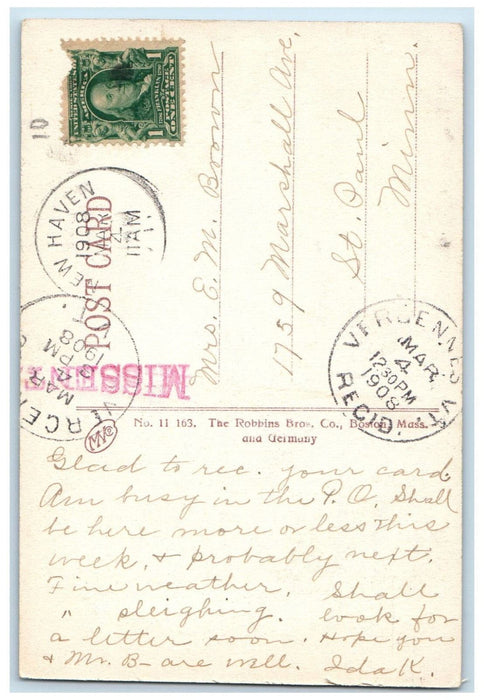 10
UNITED STATES OF AMERICA
1 POSTAGE 1
ONE CENT
NEW HAVEN
1908
MAR
4
11AM
POST CARD
MISSENT
MAR
PM
1908
VERGENNES VT.
MAR
4
1230PM
1908
REC'D.
Mrs. E. M. Brown
1759 Marshall Ave,
St. Paul
Minn.
No. 11 163. The Robbins Bros. Co., Boston, Mass.
and Germany
Glad to rec. your card
Am busy in the P.O. Shall
be here more or less this
week, & probably next.
Fine weather. Shall
" sleighing. look for
a letter soon. Hope you
& Mr. B- are well. Ida K.